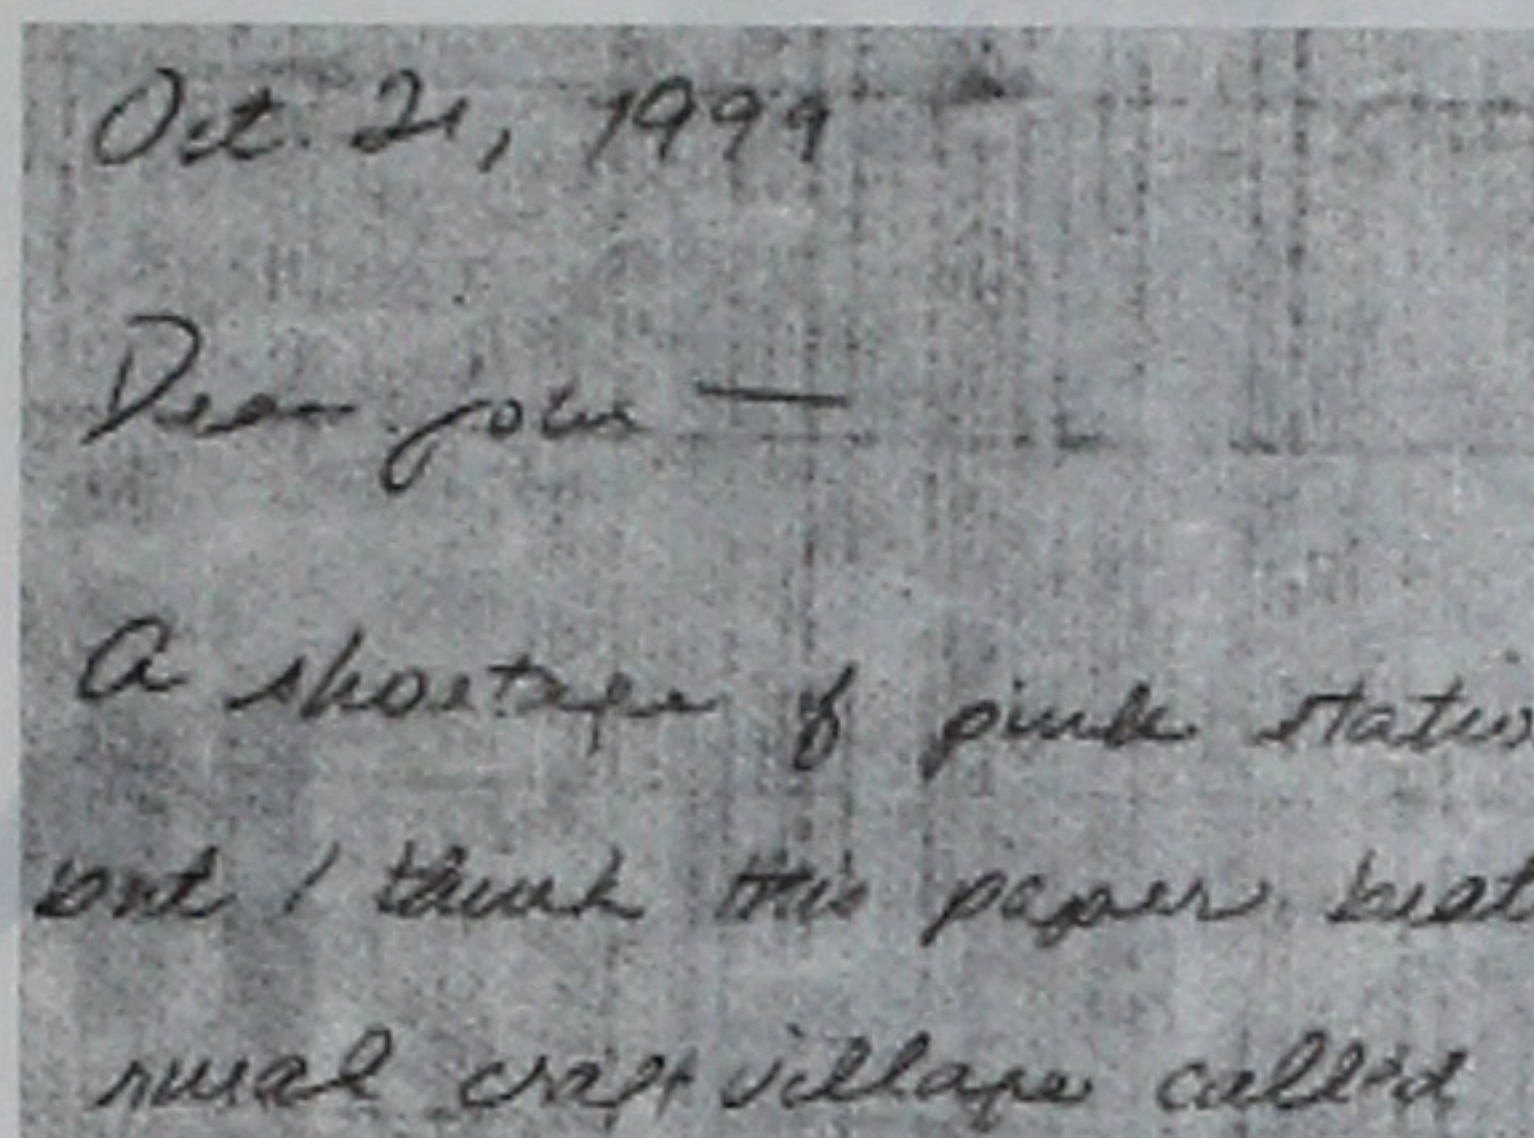 Oct. 21, 1999
Dear John —
A shortage of pink statio
but I think this paper beat
rural craft village called